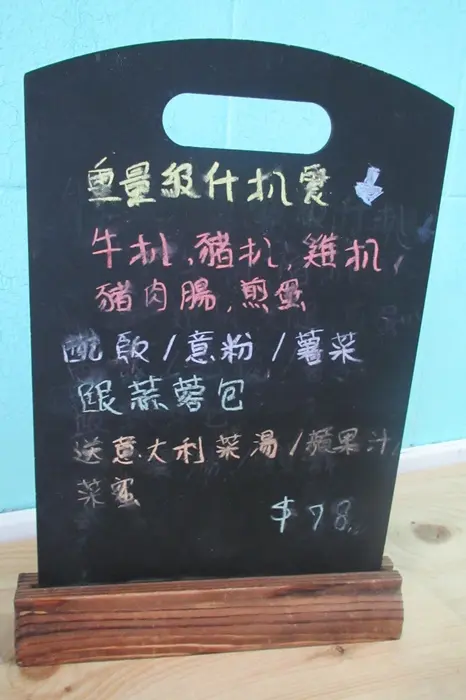 重量級什扒餐
牛扒,豬扒,雞扒,
豬肉腸,煎蛋
配飯/意粉/薯菜
跟蒜蓉包
送意大利菜湯/蘋果汁
菜蜜
$78